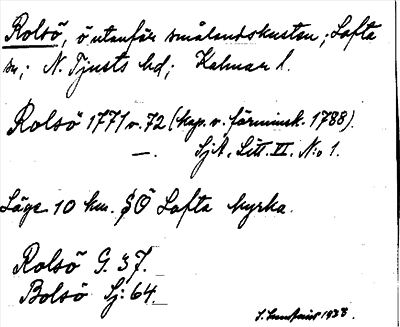 Rolsö, ö utanför smålandskusten; Lofta
sn; N. Tjusts hd; Kalmar l.
Rolsö 1771 o. 72 (kop. o. förminsk. 1788).
—. SjA. Litt. VI. N:o 1.
Läge 10 km. SÖ Lofta kyrka.
Rolsö G. 37.
Bolsö Sj: 64.
1933.